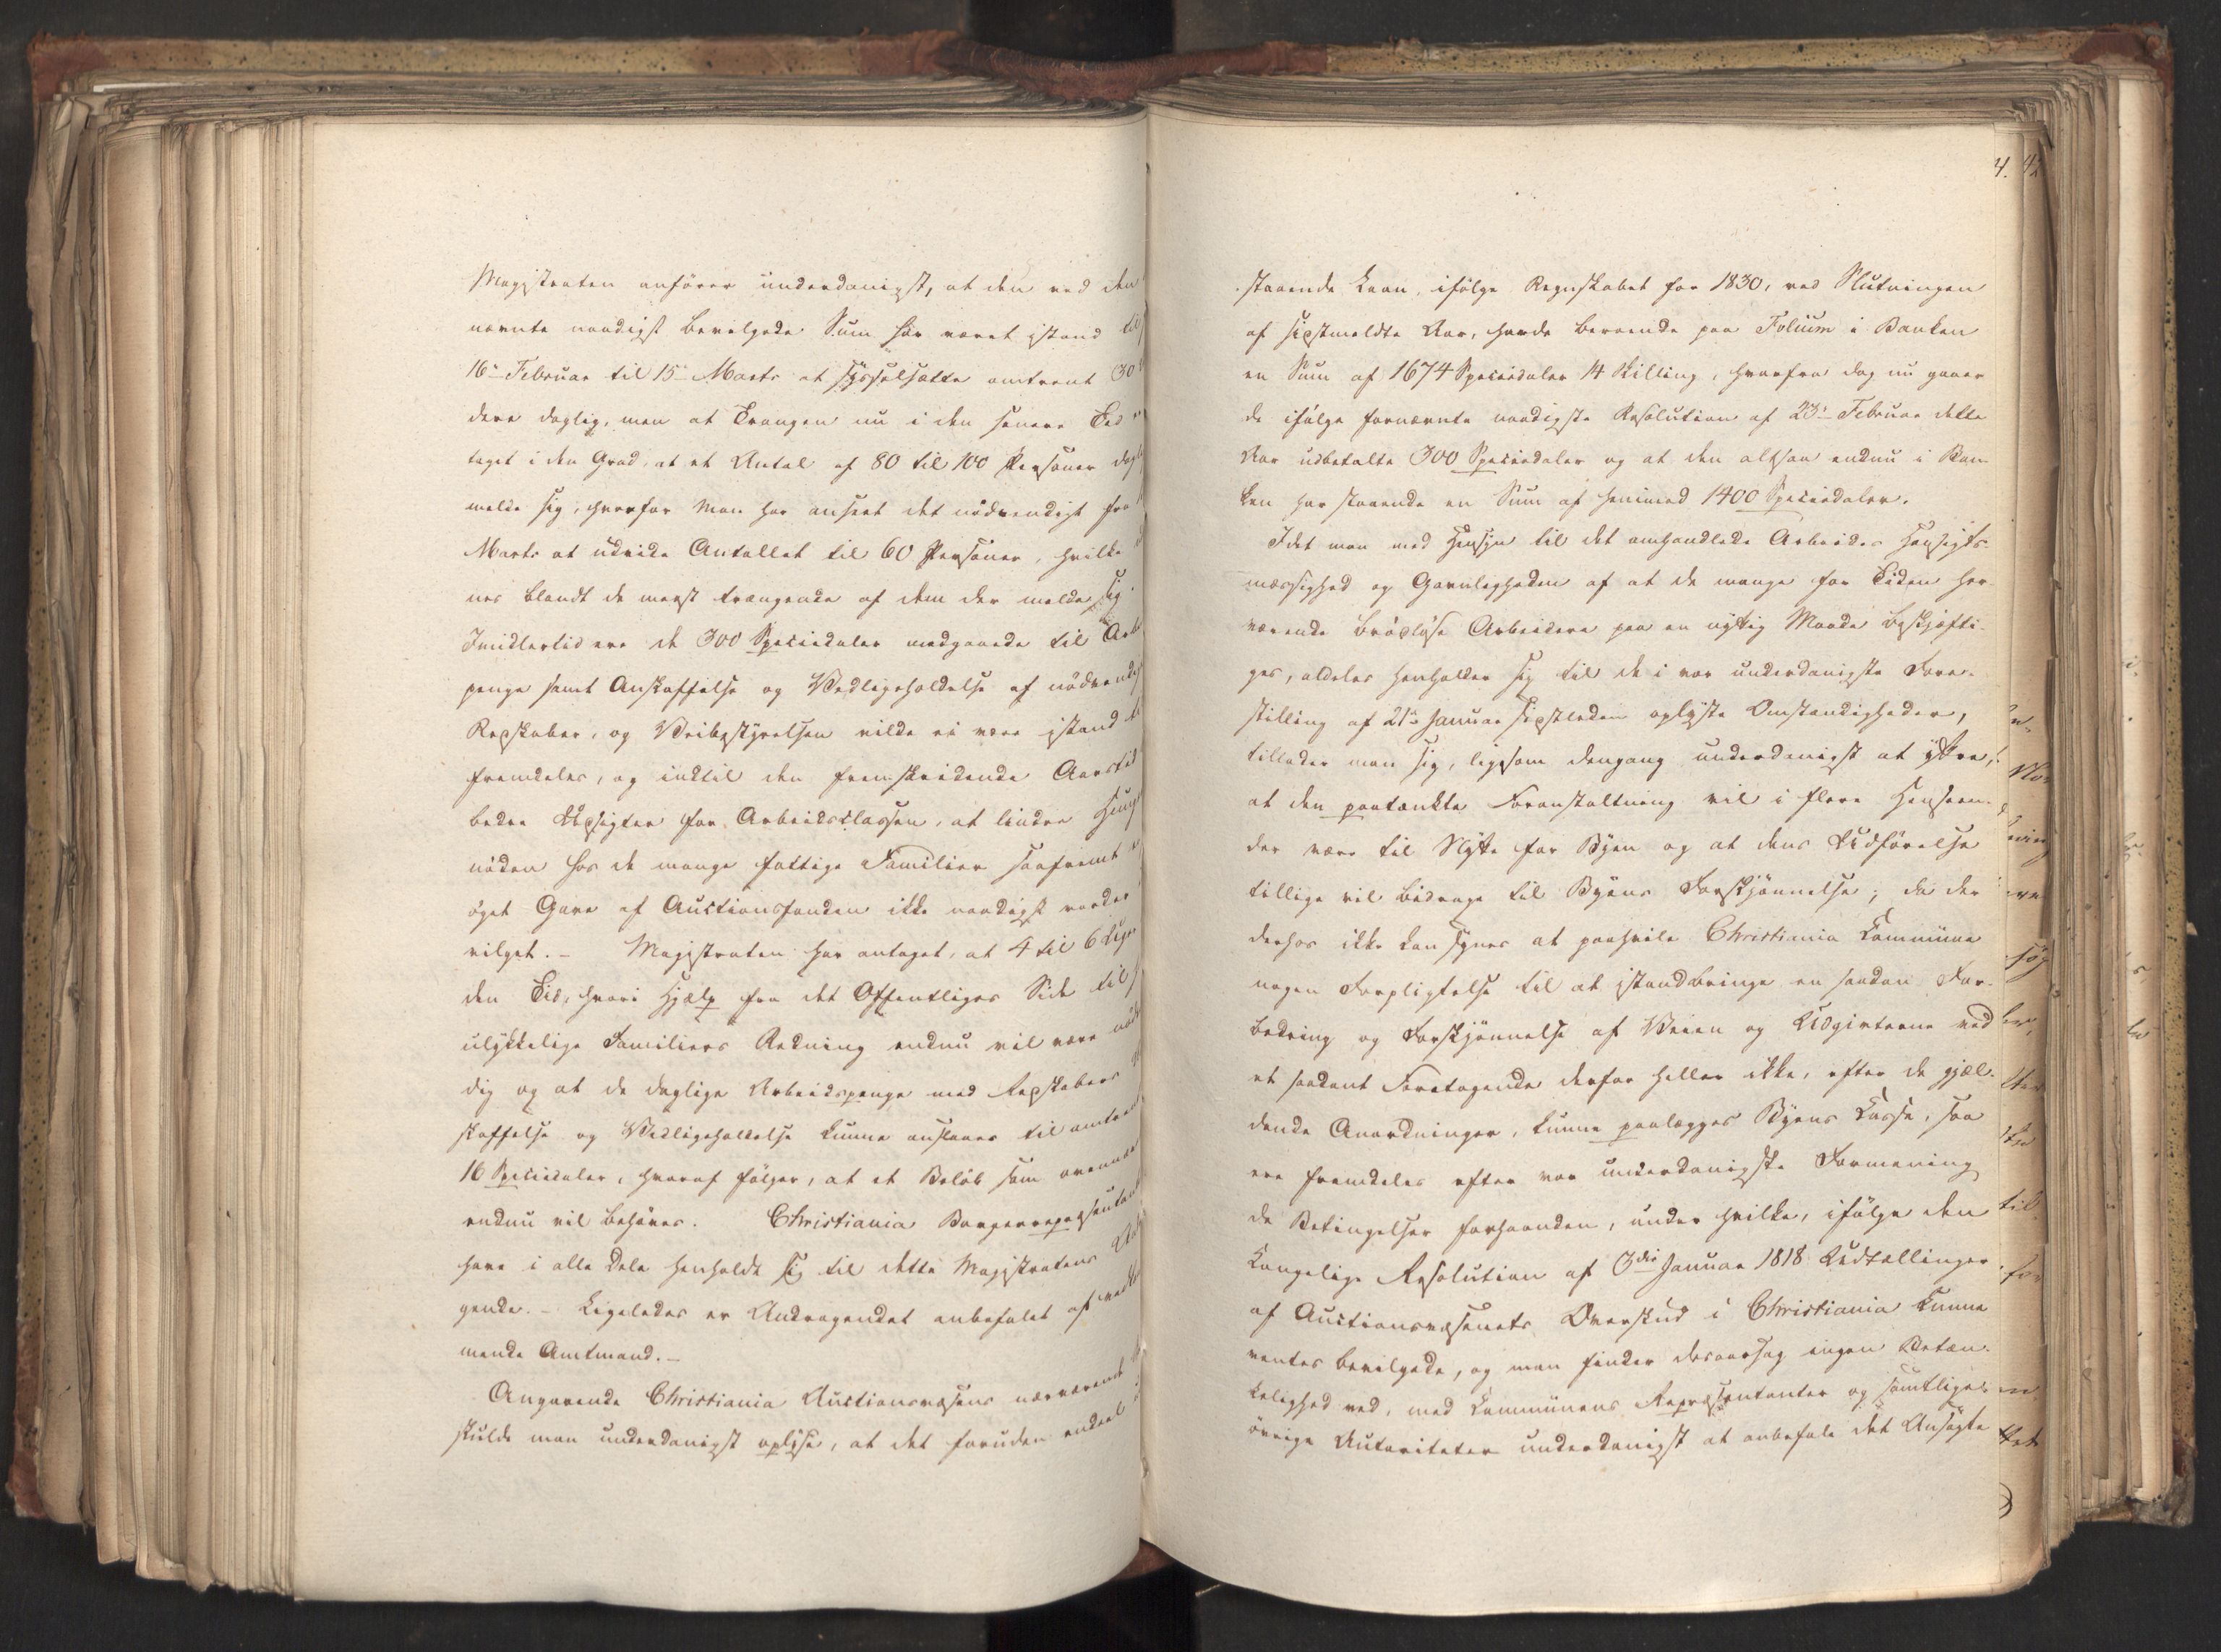 Magistraten anfører underdanigst, at den ved den
nævnte naadigst bevilgede Sum har været istand til
16de Februar til 15de Marts at sysselsætte omtrent 30
dere daglig, men at Trangen nu i den senere Tid
taget i den Grad, at et Antal af 80 til 100 Personer dagl
melde sig, hvorfor man har anseet det nødvendigt fra
Marts at udvide Antallet til 60 Personer, hvilke
nes blandt de meest trængende af dem der melde sig.
Imidlertid ere de 300 Speciedaler medgaaede til Arb
penge samt Anskaffelse og Vedligeholdelse af nødvendig
Redskaber, og Veibestyrelsen vilde ei være istand
fremdeles, og indtil den fremskridende Aarstid
bedre Udsigter for Arbeidsclassen, at lindre Hung
nøden hos de mange fattige Familier saafremt
øget Gave af Auctionsfonden ikke naadigst vorder
vilget. - Magistraten har antaget, at 4 til 6 Uger
den Tid, hvori Hjælp fra det Offentliges Side til
ulykkelige Familiers Redning endnu vil være nød
dig og at de daglige Arbeidspenge med Redskabers
skaffelse og Vedligeholdelse kunne ansees til omtren
16 Speciedaler, hvoraf følger, at et Beløb som ovennæ
endnu vil behøves. Christiania Borgerrepræsentant
have i alle Dele henholdt sig til dette Magistratens
gende. - Ligeledes er Andragendet anbefalet af vedk
mende Amtmand. -
Angaaende Christiania Auctionsvæsens nærværende
skulde man underdanigst oplyse, at det foruden endeel
staaende Laan, ifølge Regnskabet for 1830, ved Slutningen
af sidstmeldte Aar, havde beroende paa Folium i Banken
en Sum af 1674 Speciedaler 14 Skilling, hvorfra dog nu gaaer
de ifølge fornævnte naadigste Resolution af 23de Februar dette
Aar udbetalte 300 Speciedaler og at den altsaa endnu i Ban-
ken har staaende en Sum af henimod 1400 Speciedaler.
Idet man med Hensyn til det omhandlede Arbeides Hensigts-
mæssighed og Gavnligheden af at de mange for Tiden her-
værende brødløse Arbeidere paa en nyttig Maade beskjæfti-
ges, aldeles henholder sig til de i vor underdanigste Fore-
stilling af 21de Januar sidstleden oplyste Omstændigheder,
tillader man sig, ligesom dengang underdanigst at yttre,
at den paatænkte Foranstaltning vil i flere Henseen-
der være til Nytte for Byen og at dens Udførelse
tillige vil bidrage til Byens Forskjønnelse; da der
derhos ikke kan synes at paahvile Christiania Commune
nogen Forpligtelse til at istandbringe en saadan For-
bedring og Forskjønnelse af Veien og Udgivterne ved
et saadant Foretagende derfor heller ikke, efter de gjæl-
dende Anordninger, kunne paalægges Byens Casse, saa
ere fremdeles efter vor underdanigste Formening
de Betingelser forhaanden, under hvilke, ifølge den
Kongelige Resolution af 3die Januar 1818 Udtællinger
af Auctionsvæsenets Overskud i Christiania kunne
ventes bevilgede, og man finder desaarsag ingen Betæn-
kelighed ved, med Communens Repræsentanter og samtlige
øvrige Autoriteter underdanigst at anbefale det Ansøgte